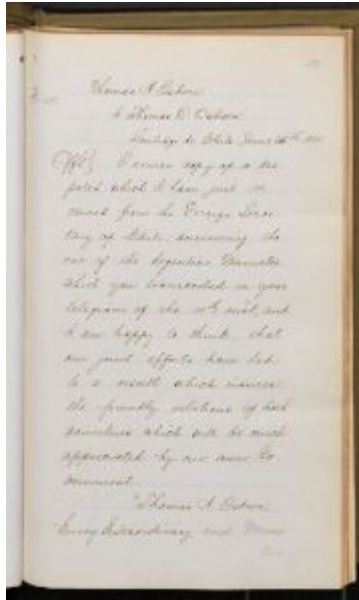 Thomas A. Osborn
to Thomas O. Osborn
Santiago de Chile June
I enclose copy of a des
patch which I have just re
ceived from the Foreign Secre
tary of Chile, answering the
one of the Argentine Minister
which you transmitted in your
telegram of the inst, and
I am happy to think that
our joint efforts have led
to a result which insures
the friendly relations of both
countries which will be much
appreciated by our own Go
vernment.
Thomas A. Osborn
Envoy Extraordinary and